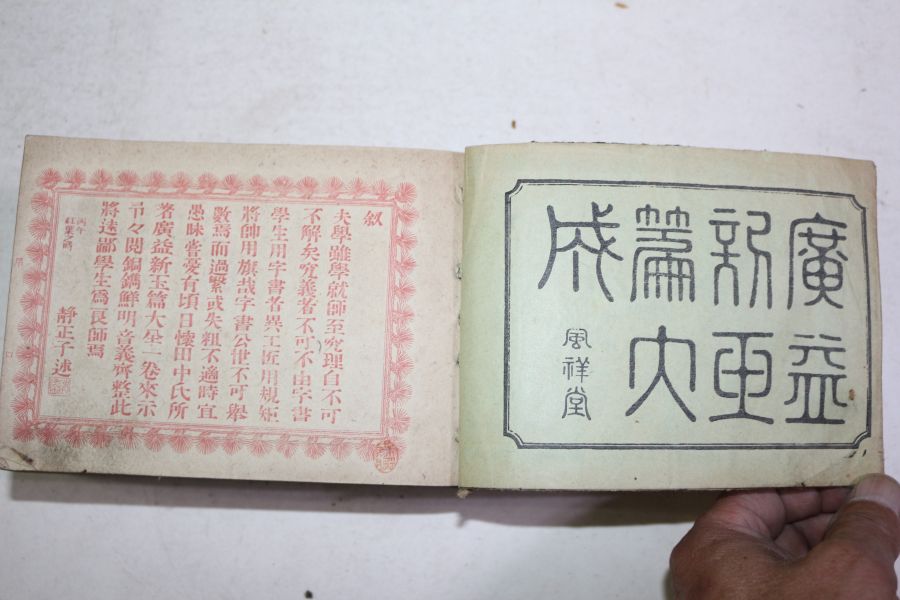 廣益
新玉
篇大
成
風祥堂
叙
夫學雖學就師至究理自不可
不解矣究義者不可不由字書
學生用字書者異工匠用規矩
將帥用旗哉字書公世不可舉
數焉而過繁或失粗不適時宜
愚昧嘗憂有頃日懷田中氏所
著廣益新玉篇大全一卷來示
予々閱銅鐫鮮明音義齊整此
將送鄙學生爲良師焉
丙午
靜正子述